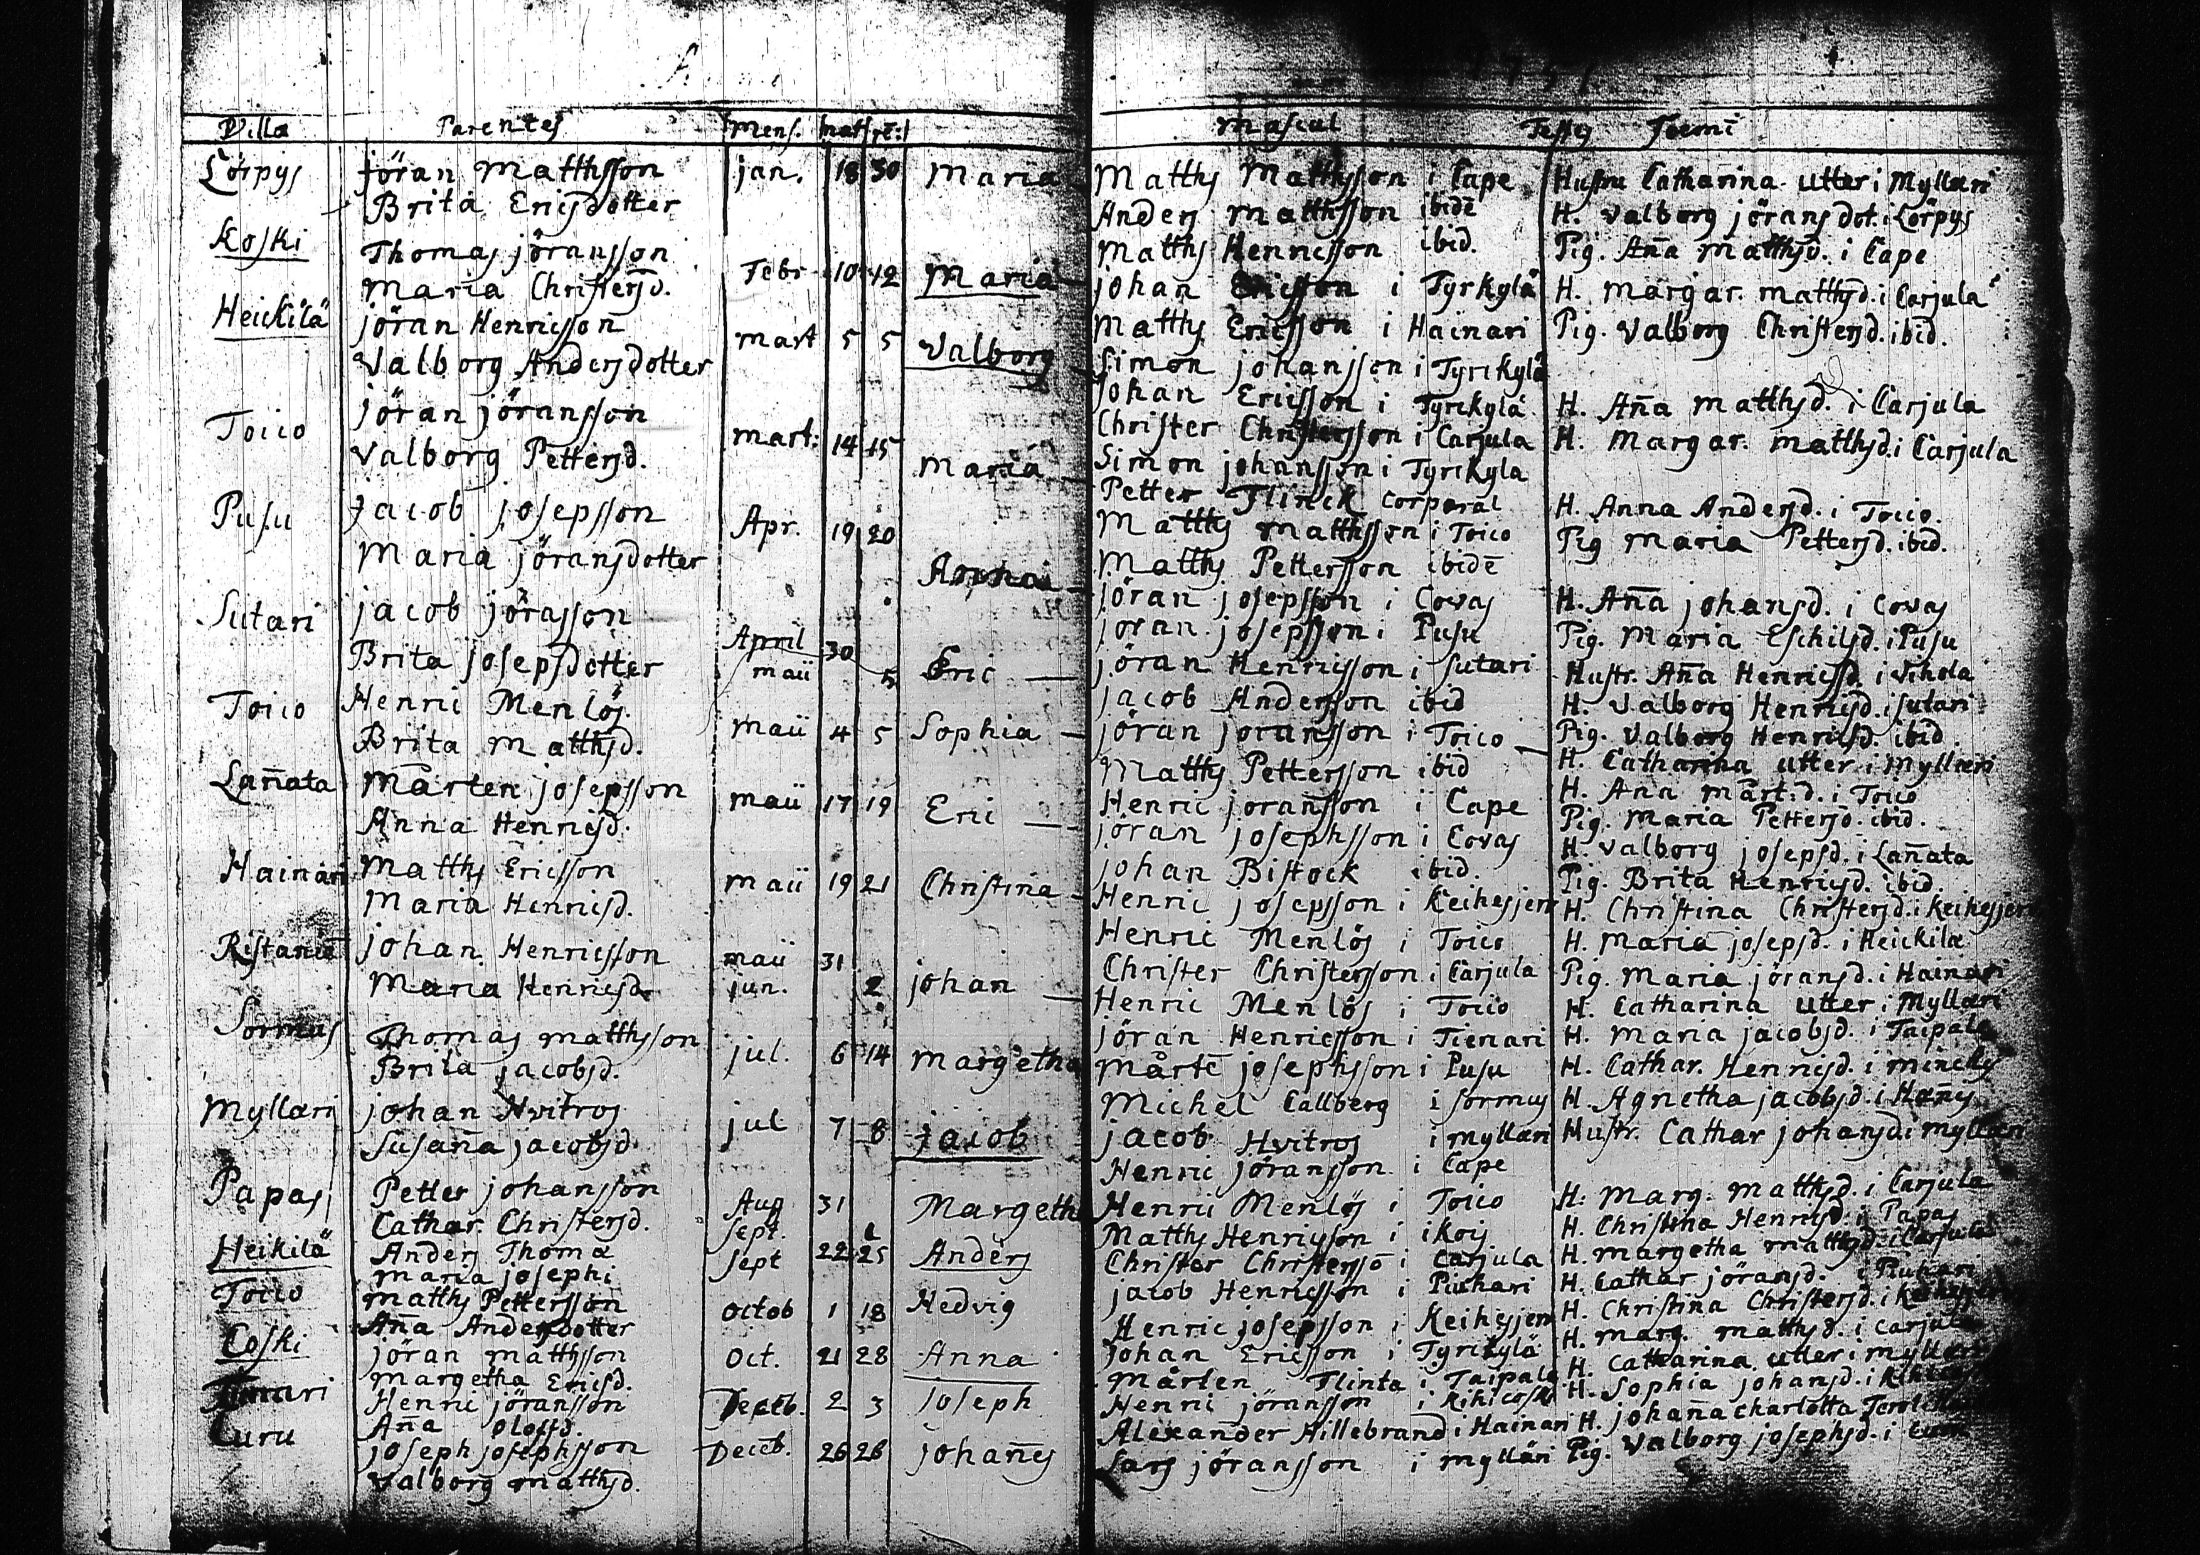 Villa Parentes Mens. nat: re:
Mascul Testes Foemi
Lörpys Jöran Matthsson jan. 18 30 Maria
Brita Ericsdotter
Koski Thomas jöransson Febr 10 12 Maria
Maria Christersd.
Heickilä jöran Henricsson mart 5 5 Valborg
Valborg Andersdotter
Toico jöran jöransson mart: 14 15 Maria
Valborg Pettersd.
Pusu Jacob josepsson Apr. 19 20 Anna
Maria jöransdotter
Sutari jacob jörasson April 30
Brita josepsdotter maii 5 Eric
Toico Henric Menlös maii 4 5 Sophia
Brita matthsd.
Lan̄ata Mårten josepsson maii 17 19 Eric
Anna Henricsd.
Hainari Matths Ericsson maii 19 21 Christina
Maria Henricsd.
johan Henricsson maii 31
Maria Henricsd jun. 2 johan
Sormus Thomas matthsson jul. 6 14 margetha
Brita jacobsd.
Myllari johan Hvitros jul 7 8 jacob
Susan̄a jacobsd
Papas Petter johansson Aug 31 Margeth
Cathar. Christersd. Sept.
Heikilä Anders Thomæ Sept 22 25 Anders
maria josephi
Toico matths Pettersson octob 1 18 Hedvig
An̄a Andersdotter
Coski jöran matthsson oct. 21 28 Anna
margetha Ericsd.
Henric jöransson Deceb. 2 3 joseph
An̄a Olofsd.
Curu joseph josephsson Deceb. 26 26 johan̄es
Valborg matthsd.
Matths Matthsson i Cape Hustru Catharina utter i Myllari
Anders matthsson ibidē H. Valborg jörans dot. i Lörpys
Matths Henricsson ibid. Pig. An̄a matthsd. i Cape
johan Ericsson i Tyrkylä H. margar. matthsd. i Carjula
Matths Ericsson i Hainari Pig. Valborg Christersd. ibid.
Simon johansson i Tyrikylä
Johan Ericsson i Tyrikylä H. An̄a matthsd. i Carjula
Christer Christersson i Carjula H. Margar. matthsd. i Carjula
Simon johansson i Tyrikyla
Petter Flinck corporal H. Anna Andersd. i Toico.
Matths matthsson i Toico Pig Maria Pettersd. ibid.
Matths Pettersson ibidē
jöran josepsson i Covas H. An̄a johansd. i Covas
jöran josepsson i Pusu Pig. Maria Eschilsd. i Pusu
jöran Henricsson i Sutari Hustr. An̄a Henricsd. i Vihola
jacob Andersson ibid H. Valborg Henricsd. i Sutari
jöran joransson i Toico Pig. Valborg Henricsd. ibid
Matths Pettersson ibid H. Catharina utter i Myllari
Henric joransson i Cape H. An̄a mårt:d. i Toico
jöran josephsson i Covas Pig. Maria Pettersd. ibid.
johan Bistock ibid. H. Valborg josepsd. i Lan̄ata
Henric josepsson i Keihesjerv Pig. Brita Henricsd. ibid.
Henric Menlös i Toico H. Christina Christersd. i Keihesjerv
Christer Christersson i Carjula H. Maria josepsd. i Heickila
Henric Menlös i Toico Pig. Maria jöransd. i Hainari
jöran Henricsson i Tienari H. Catharina utter i Myllari
mårtē josephsson i Pusu H. Maria jacobsd. i Taipale
Michel Callberg i Sormus H. Cathar. Henricsd. i
jacob Hvitros i myllari H. Agnetha jacobsd. i
Henric jöransson i Cape Hustr. Cathar johansd. i myllari
Henric Menlös i Toico H. Marg. matthsd. i Carjula
Matths Henricsson i ikois H. Christina Henricsd. i Papas
Christer Christerssō i Carjula H. margetha matthsd. i Carjula
jacob Henricsson i Piukari H. Cathar jöransd. i Piukari
Henric josepsson i Keihesjerv H. Christina Christersd. i
johan Ericsson i Tyrikylä H. marg. matthsd. i Carjula
Mårten Flinta i Taipale H. Catharina utter i myllari
Henric jöransson i Kihicoski H. Sophia johansd. i
Alexander Hillebrand i Hainari H. johan̄a charlotta
Lars jöransson i myllari Pig. Valborg josephsd. i